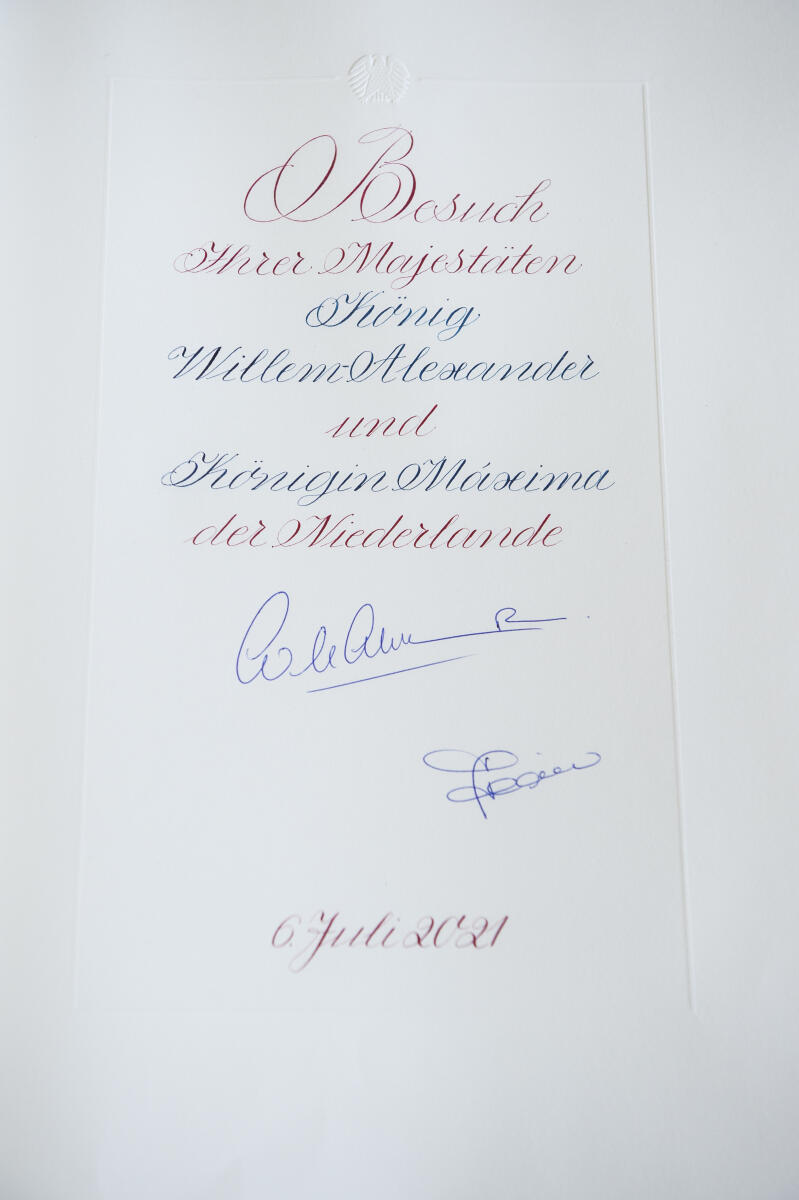 Besuch
Ihrer Majestäten
König
Willem-Alexander
und
Königin Máxima
der Niederlande
6. Juli 2021